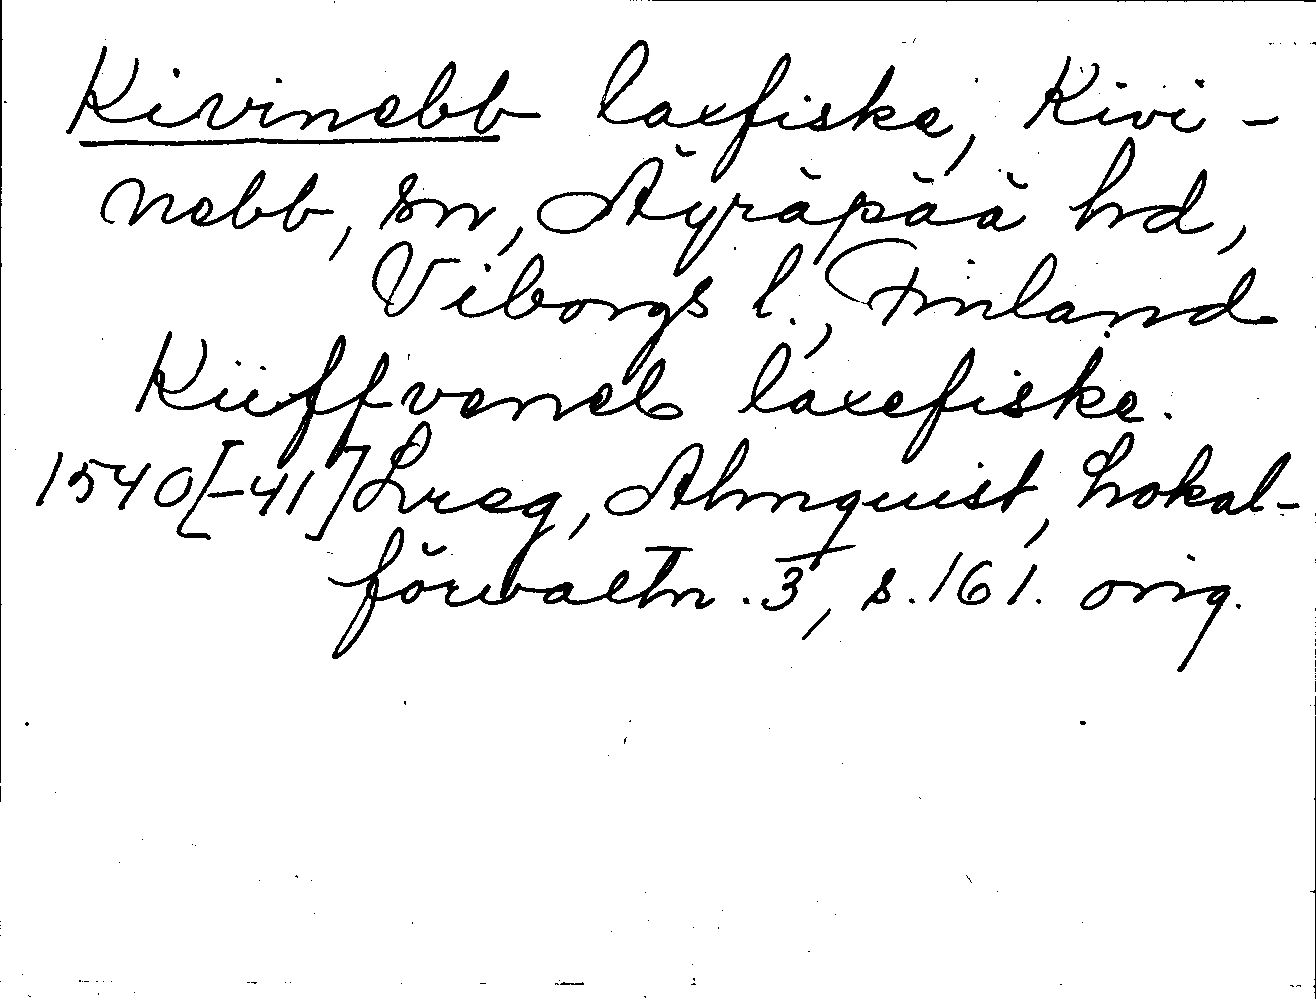 Kivinebb laxfiske, Kivi-
nebb, sn, Äyräpää hd,
Viborgs l., Finland
Kiiffveneb laxefiske.
1540[-41] Lreg, Almquist, Lokal-
förvaltn. 3, s. 161. orig.